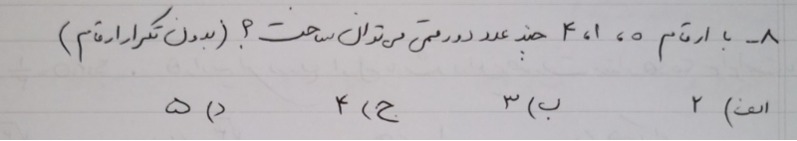 ۸- با ارقام ۰، ۱، ۴ چند عدد دورقمی می‌توان ساخت؟ (بدون تکرار ارقام)
الف) ۲ ب) ۳ ج) ۴ د) ۵